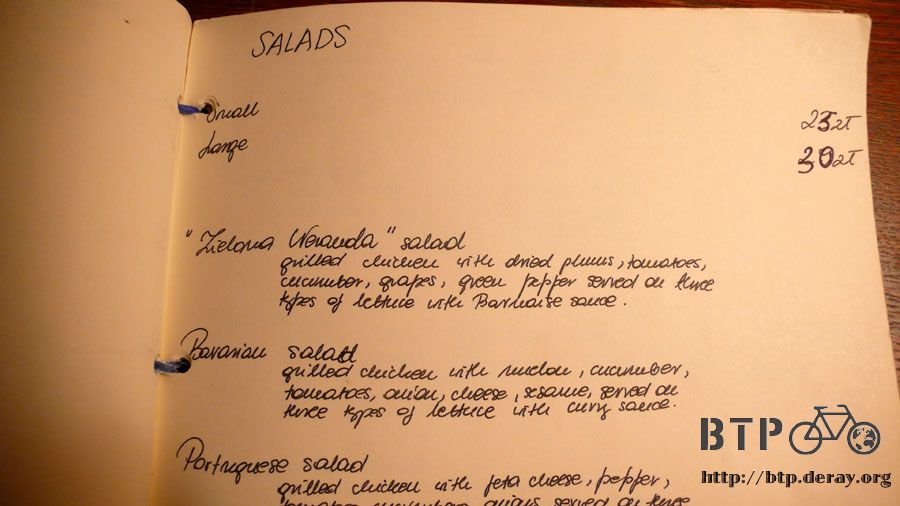 SALADS
Small 25zł
Large 30zł
"Zielona Weranda" salad
grilled chicken with dried plums, tomatoes,
cucumber, grapes, green pepper served on three
types of lettuce with Barnaise sauce.
Bavarian salad
grilled chicken with melon, cucumber,
tomatoes, onion, cheese, sesame, served on
three types of lettuce with curry sauce.
Portuguese salad
grilled chicken with feta cheese, pepper,
served on three
BTP
http://btp.deray.org